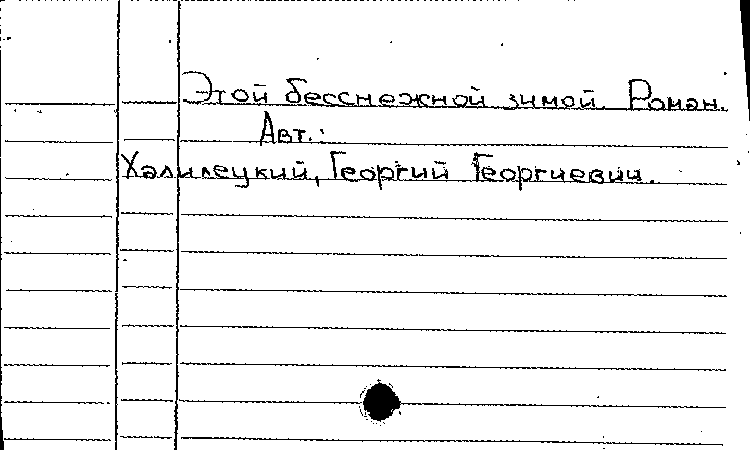 Этой бесснежной зимой. Роман.
Авт.:
Халилецкий, Георгий Георгиевич.